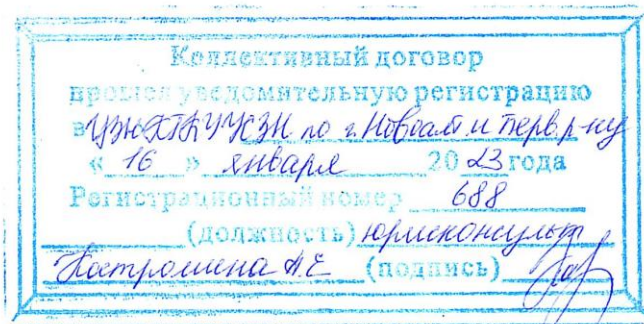 Коллективный договор
прошел уведомительную регистрацию
в УЗН КГКУ УСЗН по г. Новоалт и Перв. р-ну
« 16 » января 20 23 года
Регистрационный номер 688
(должность) юрисконсульт
Костромина А.Е (подпись)